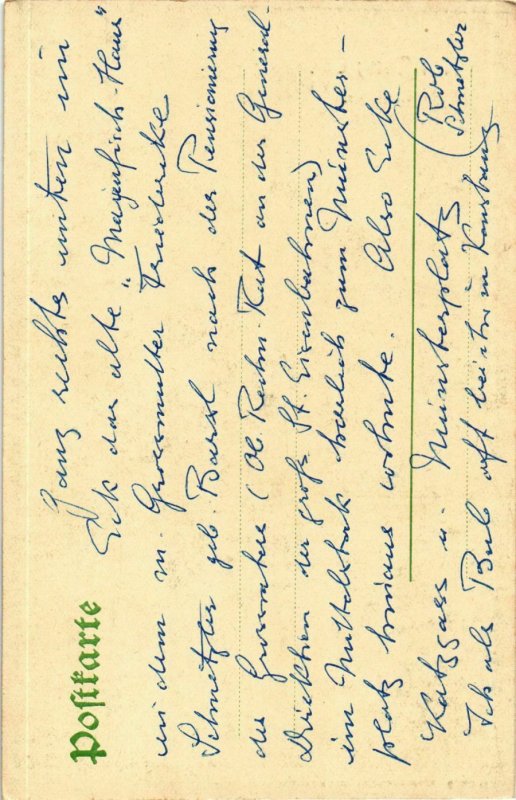 Postkarte
Ganz rechts unten im
Eck das alte "Mayenfisch-Haus"
in dem m. Grossmutter Friedericke
Schnetzler geb. Barxl nach der Pensionierung
des Grossvaters (Ob. Rechn. Rat an der General-
Direktion der großh. St. Eisenbahnen)
im Mittelstock seitlich zum Münster-
platz hinaus wohnte. Also Ecke
Katzgass u. Münsterplatz
Ich als Bub oft bei ihr in Konstanz
(Rob
Schnetzler